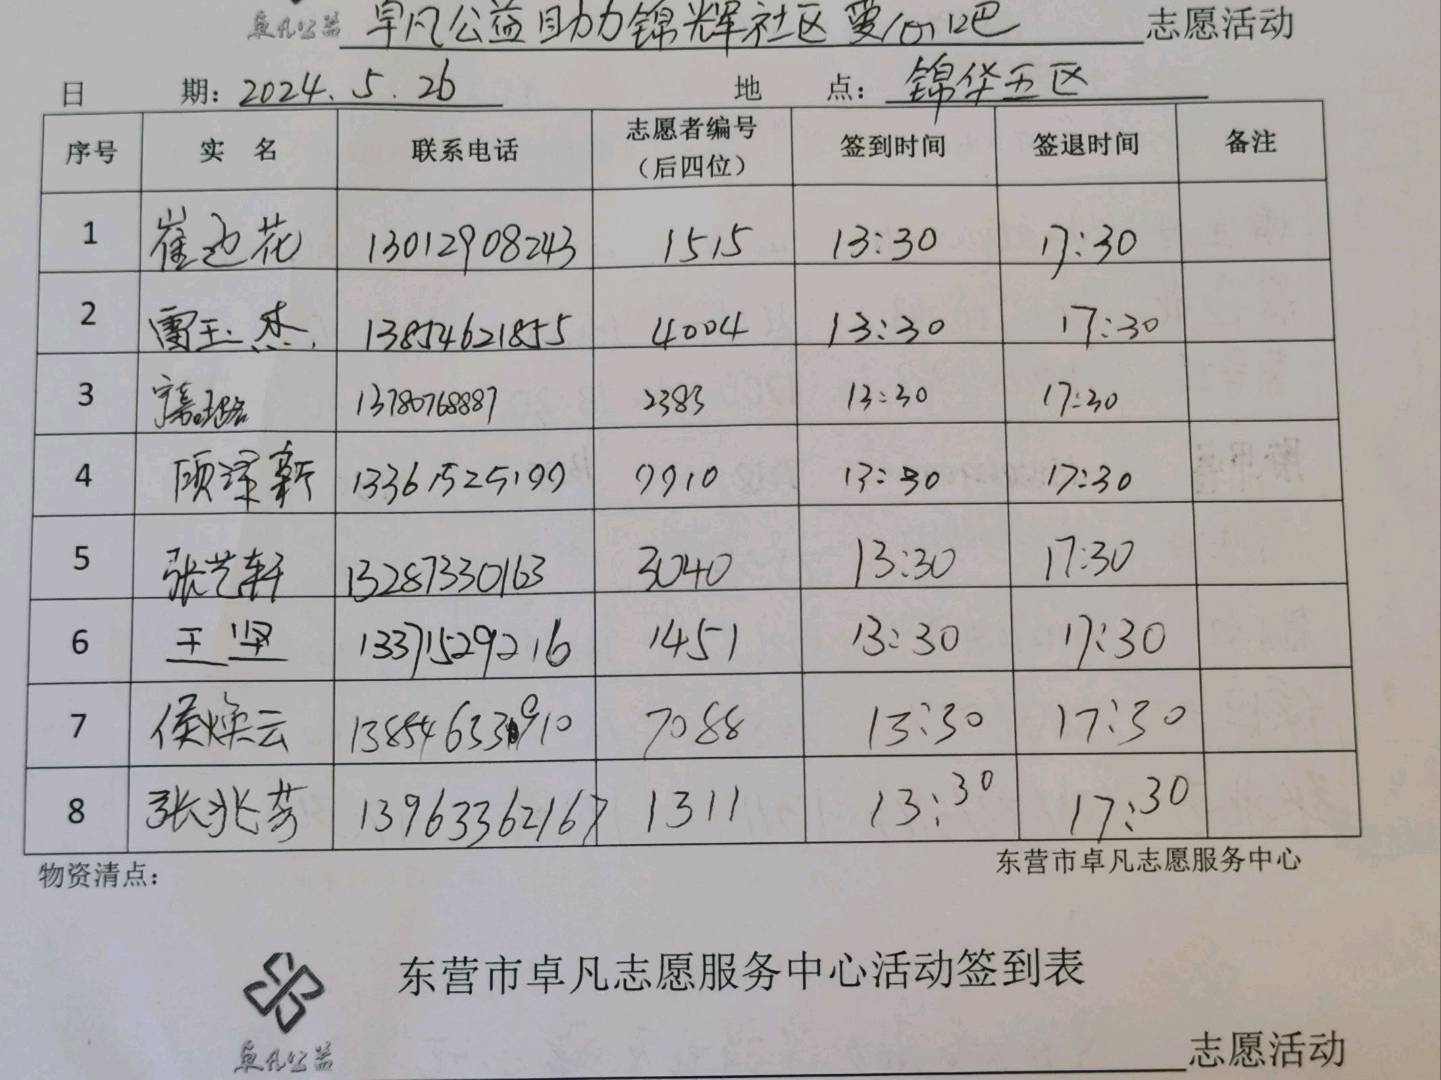 卓凡公益 卓凡公益助力锦辉社区 志愿活动
日 期：2024.5.26 地 点：锦华五区
序号 实 名 联系电话 志愿者编号（后四位） 签到时间 签退时间 备注
1 崔迎花 13012908243 1515 13:30 17:30
2 雷玉杰 13854621855 4004 13:30 17:30
3 13780768887 2383 13:30 17:30
4 顾泽新 13361525199 9910 13:30 17:30
5 张艺轩 13287330163 3040 13:30 17:30
6 王坚 13371529216 1451 13:30 17:30
7 侯焕云 13854633910 7088 13:30 17:30
8 张兆芳 13963362167 1311 13:30 17:30
物资清点： 东营市卓凡志愿服务中心
东营市卓凡志愿服务中心活动签到表
卓凡公益 志愿活动